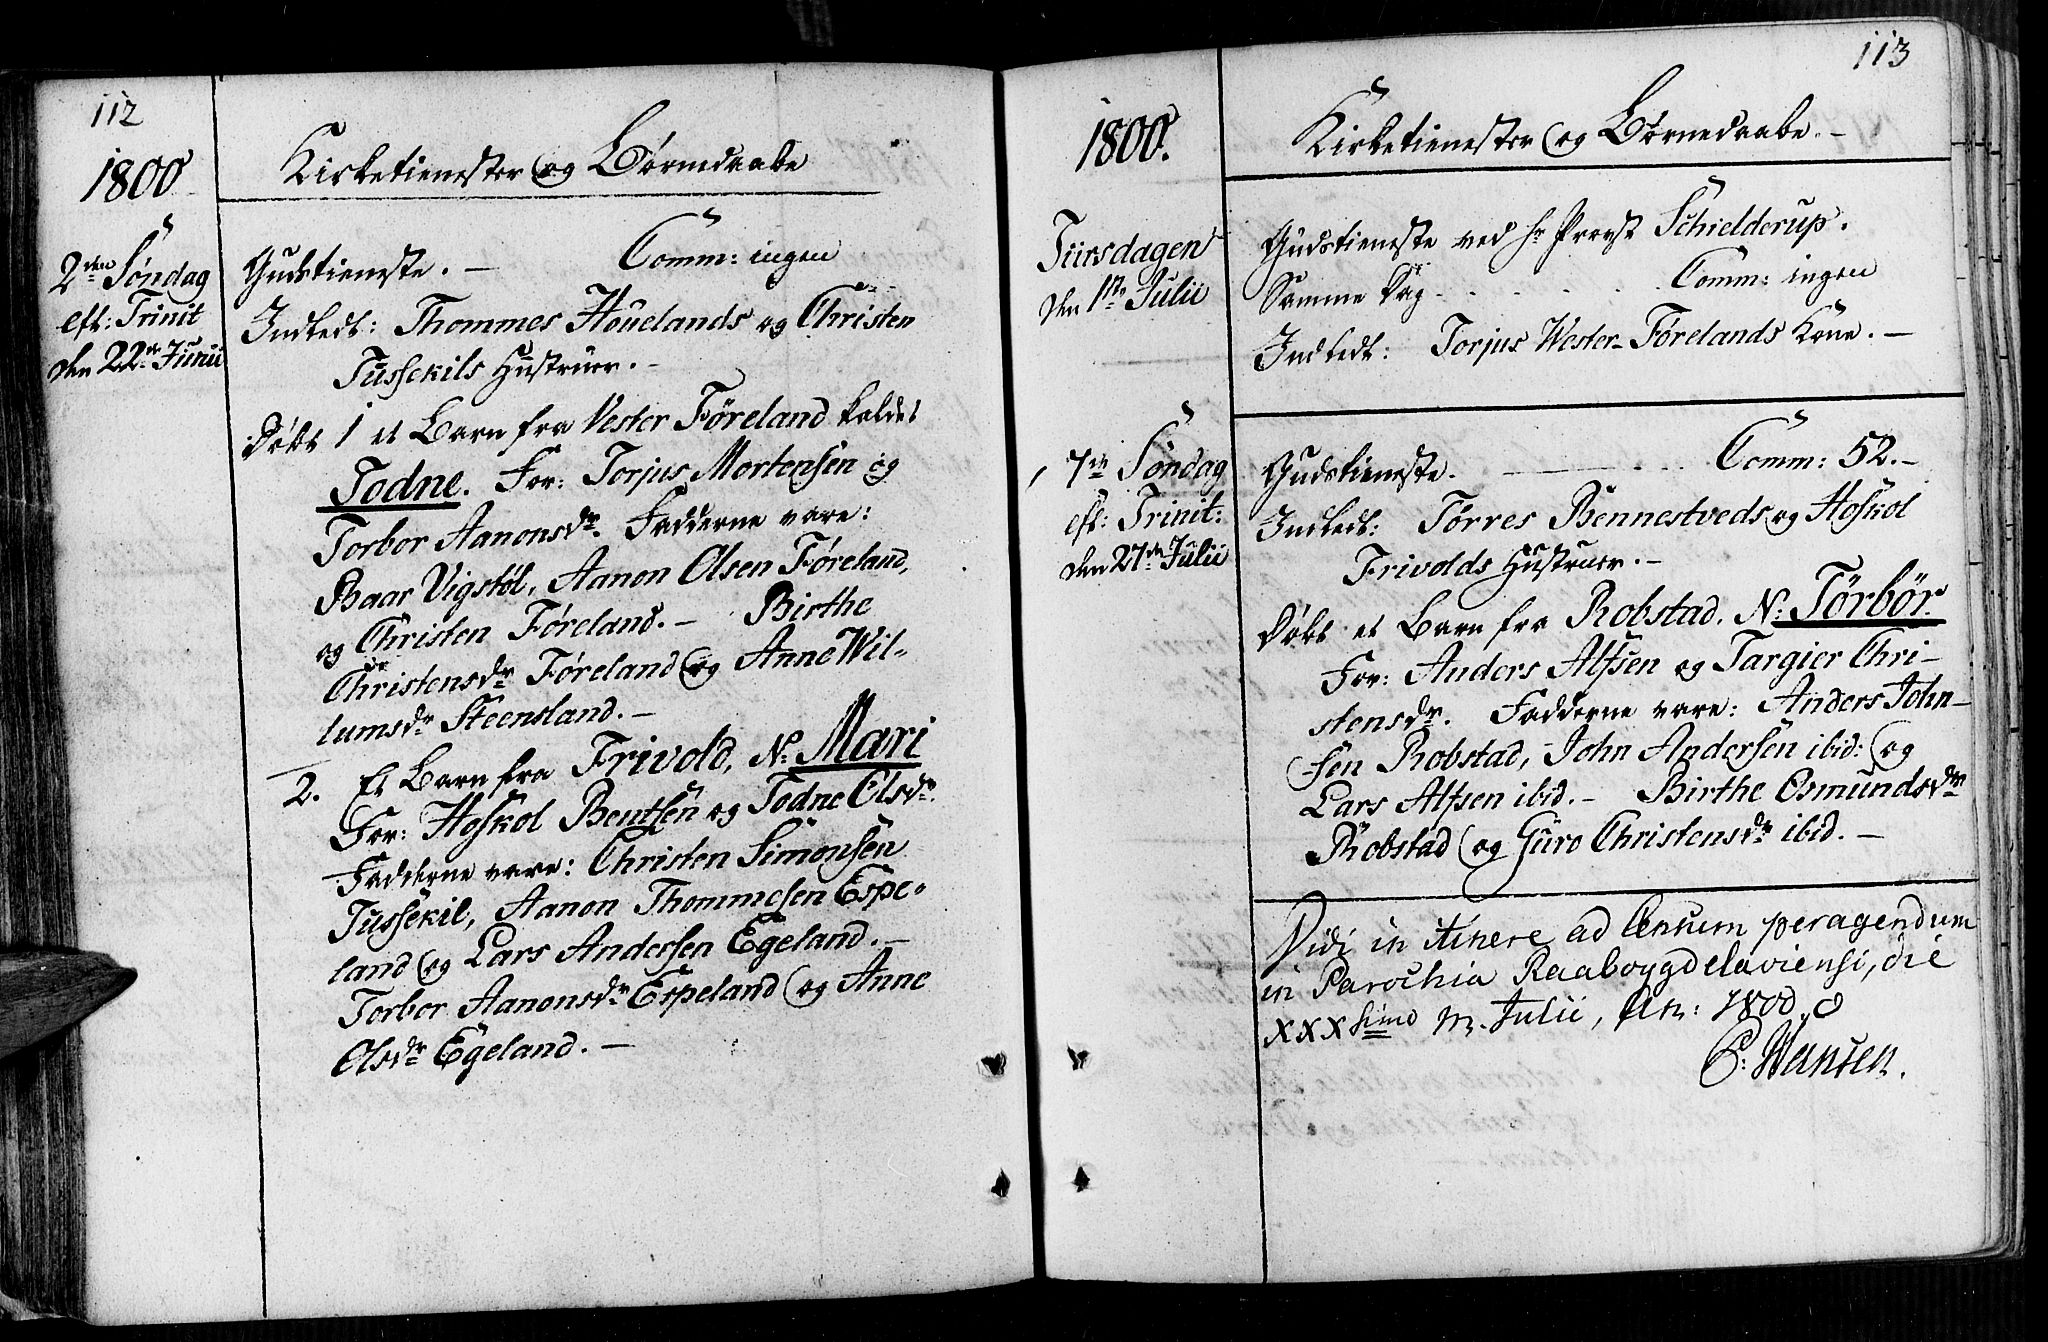 112
1800
Kirketienester og Børnedaabe
2den Søndag
eft: Trinit
den 22de Junii
Gudstieneste. — Comm: ingen
Indledt: Thommes Houelands og Christen
Tussekils Hustruer. —
Døbt 1 et Barn fra Vester Føreland kaldet
Todne. For: Torjus Mortensen og
Torbor Aanonsdr. Fadderne vare:
Baar Vigstøl, Aanon Olsen Føreland,
og Christen Føreland. — Birthe
Christensdr Føreland og Anne Wil-
lumsdr Steensland. —
2. Et Barn fra Frivold, N: Mari
For: Hoskol Bentsen og Todne Olsdr.
Fadderne vare: Christen Simonsen
Tussekil, Aanon Thommesen Espe-
land og Lars Andersen Egeland. —
Torbor Aanonsdr Espeland og Anne
Olsdr Egeland. —
113
1800.
Kirketienester og Børnedaabe. —
Tiirsdagen
den 1ste Julii
Gudstieneste ved Hr Provst Schielderup.
Samme Dag . . . . . Comm: ingen
Indledt: Torjus Wester-Førelands Kone. —
7de Søndag
eft: Trinit:
den 27de Julii
Gudstieneste. — Comm: 52. —
Indledt: Tørres Bennestveds og Hoskol
Frivolds Hustruer. —
Døbt et Barn fra Robstad. N: Tørbør.
For: Anders Alfsen og Targier Chri-
stensdr. Fadderne vare: Anders John-
sen Robstad, John Andersen ibid: og
Lars Alfsen ibid. — Birthe Osmundsdr
Robstad og Guro Christensdr ibid. —
Vidi in itinere ad Censum peragendum
in Parochia Raabøygdelaviensi, die
XXXsimo M. Julii, An: 1800.
P: Hansen.